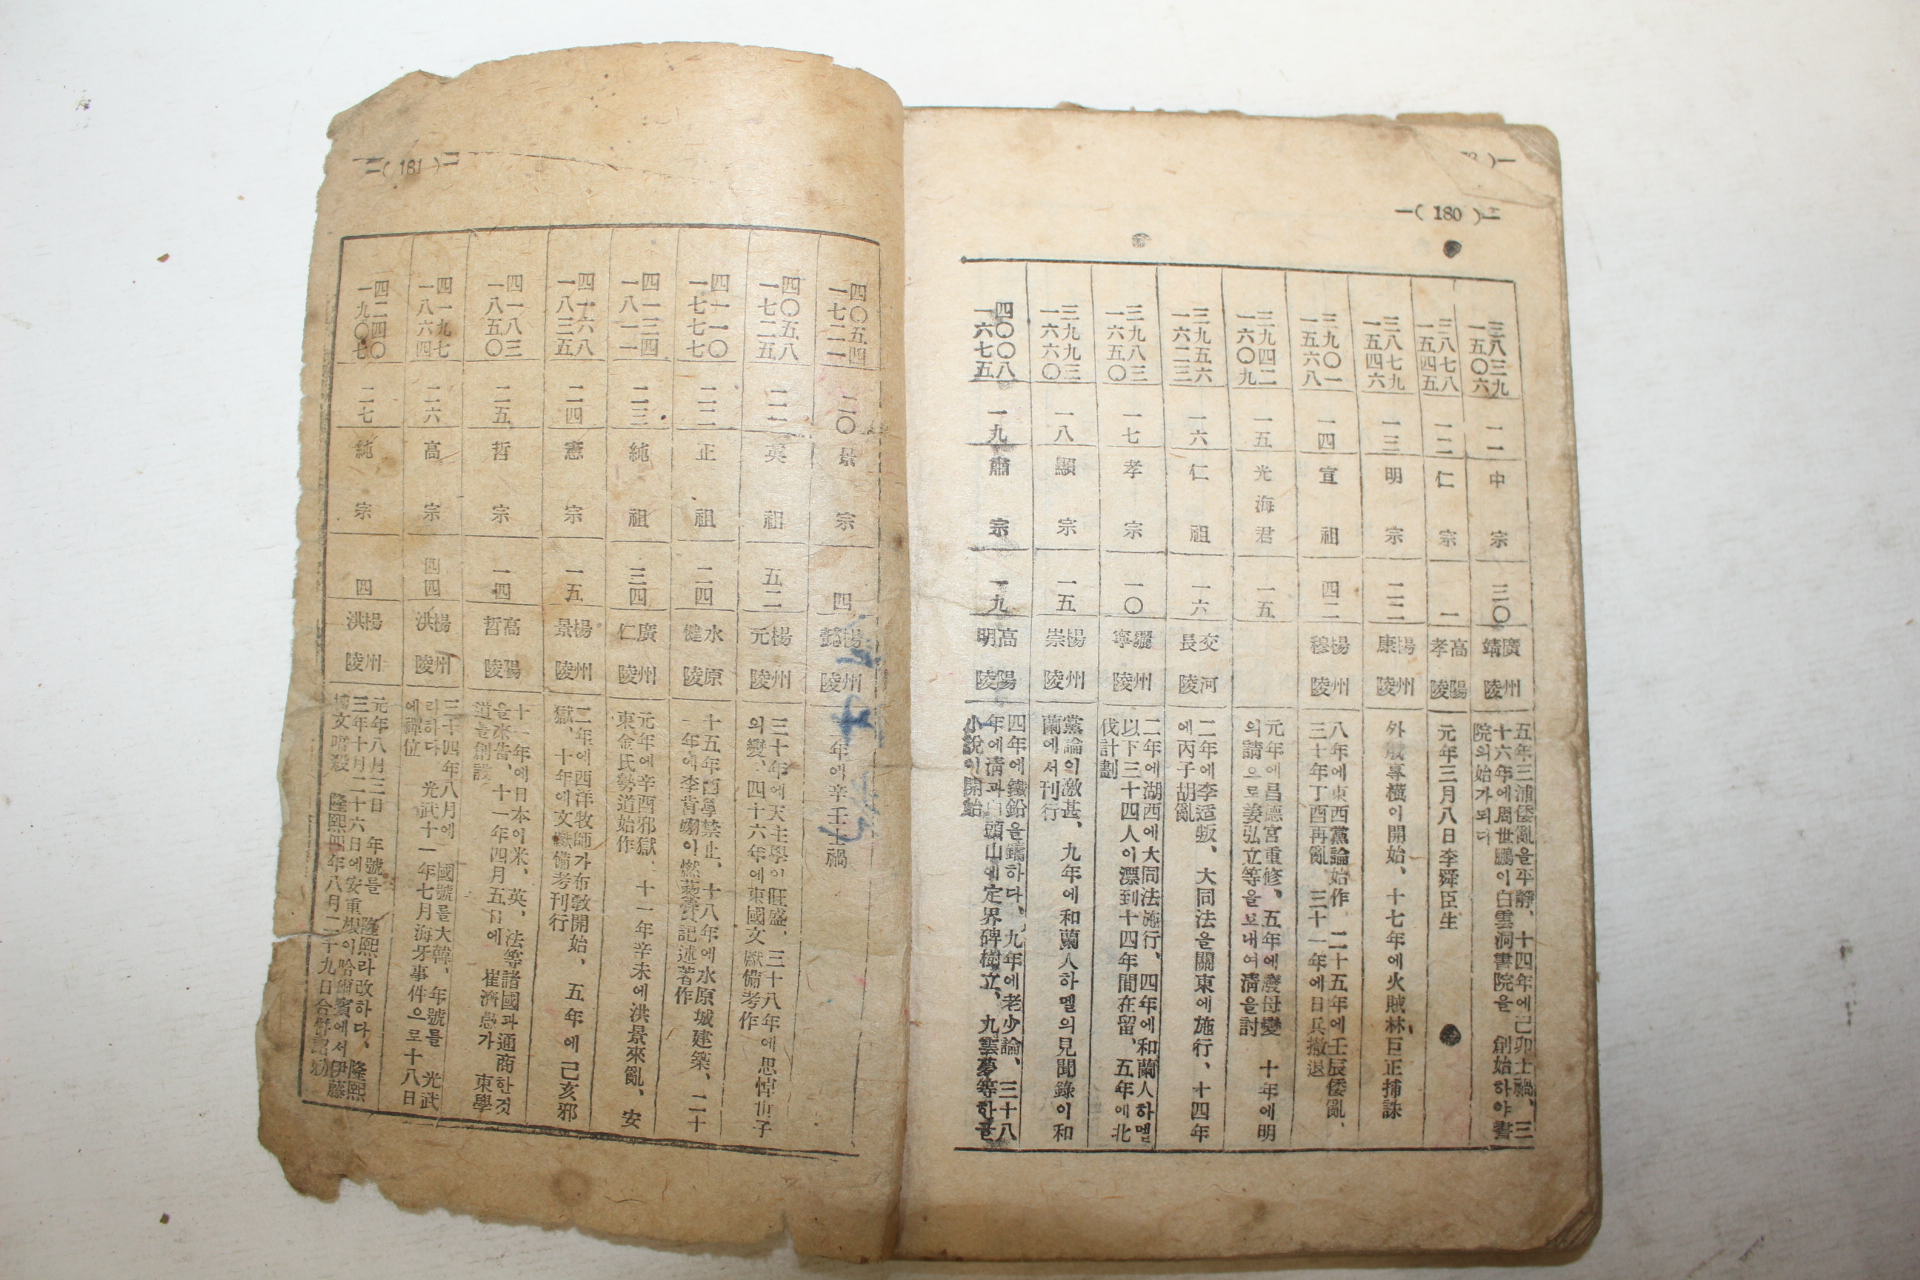 —( 180 )—
三八三九
一五〇六
一一
中宗
三〇
廣州
靖陵
五年三浦倭亂을平靜、十四年에己卯士禍、三
十六年에周世鵬이白雲洞書院을 創始하야書
院의始가되다
三八七八
一五四五
一二
仁宗
一
高陽
孝陵
元年三月八日李舜臣生
三八七九
一五四六
一三
明宗
二二
楊州
康陵
外戚專橫이開始、十七年에火賊林巨正捕誅
三九〇一
一五六八
一四
宣祖
四二
楊州
穆陵
八年에東西黨論始作 二十五年에壬辰倭亂、
三十年丁酉再亂、三十一年에日兵撤退
三九四二
一六〇九
一五
光海君
一五
元年에昌德宮重修、五年에廢母變 十年에明
의請으로姜弘立等을보내여淸을討
三九五六
一六二三
一六
仁祖
一六
交河
長陵
二年에李适叛、大同法을關東에施行、十四年
에丙子胡亂
三九八三
一六五〇
一七
孝宗
一〇
驪州
寧陵
二年에湖西에大同法施行、四年에和蘭人하멜
以下三十四人이漂到十四年間在留、五年에北
伐計劃
三九九三
一六六〇
一八
顯宗
一五
楊州
崇陵
黨論의激甚、九年에和蘭人하멜의見聞錄이和
蘭에서刊行
四〇〇八
一六七五
一九
肅宗
高陽
明陵
四年에鐵鉛을鑄하다、九年에老少論、三十八
年에淸과白頭山에定界碑樹立、九雲夢等한글
小說이開始
—( 181 )—
四〇五四
一七二一
二〇
景宗
四
楊州
懿陵
年에辛壬士禍
四〇五八
一七二五
二一
英祖
五二
楊州
元陵
三十年에天主學이旺盛、三十八年에思悼世子
의變、四十六年에東國文獻備考作
四一一〇
一七七七
二二
正祖
二四
水原
健陵
十五年西學禁止、十八年에水原城建築、二十
年에李肯翊이燃藜室記述著作
四一三四
一八一一
二三
純祖
三四
廣州
仁陵
元年에辛酉邪獄、十一年辛未에洪景來亂、安
東金氏勢道始作
四一六八
一八三五
二四
憲宗
一五
楊州
景陵
二年에西洋牧師가布敎開始、五年에己亥邪
獄、十年에文獻備考刊行
四一八三
一八五〇
二五
哲宗
一四
高陽
哲陵
十一年에日本이米、英、法等諸國과通商한것
을來告、十一年四月五日에 崔濟愚가 東學
道를創設
四一九七
一八六四
二六
高宗
四四
楊州
洪陵
三十四年八月에 國號를大韓、年號를 光武
라하다 光武十一年七月海牙事件으로十八日
에禪位
四二四〇
一九〇七
二七
純宗
四
楊州
洪陵
元年八月二日 年號를 隆熙라改하다、隆熙
三年十月二十六日에安重根이哈爾賓에서伊藤
博文暗殺 隆熙四年八月二十九日合併詔勅